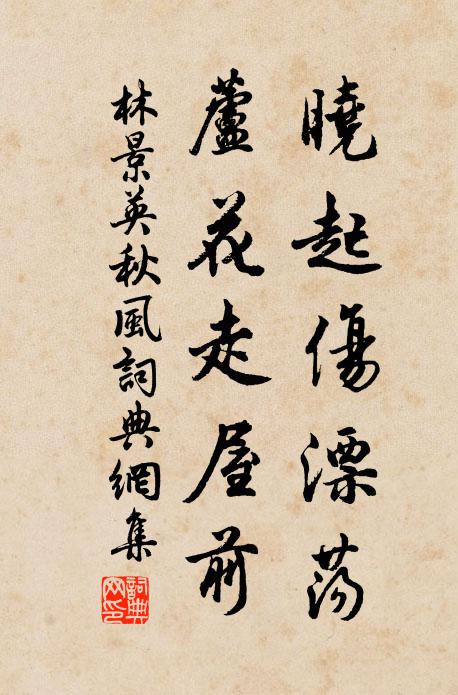 曉起傷漂蕩
蘆花走屋前
林景英秋風詞典網集
詞典網印